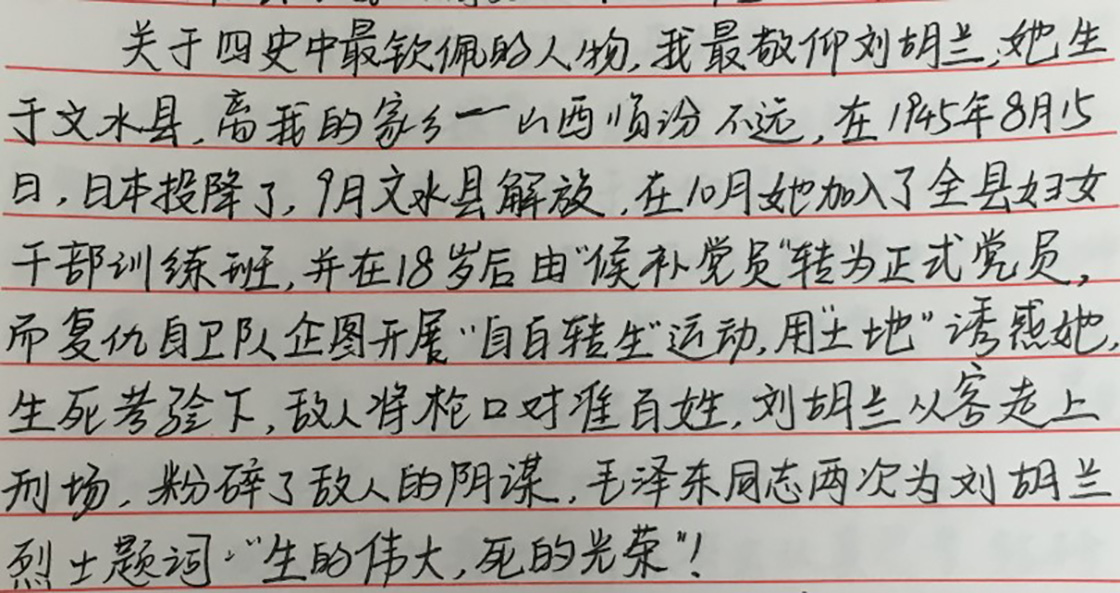 关于四史中最钦佩的人物,我最敬仰刘胡兰,她生
于文水县,离我的家乡一山西临汾不远,在1945年8月15
日,日本投降了,9月文水县解放,在10月她加入了全县妇女
干部训练班,并在18岁后由"候补党员"转为正式党员,
而复仇自卫队企图开展"自白转生"运动,用"土地"诱惑她,
生死考验下,敌人将枪口对准百姓,刘胡兰从容走上
刑场,粉碎了敌人的阴谋,毛泽东同志两次为刘胡兰
烈士题词:"生的伟大,死的光荣"!